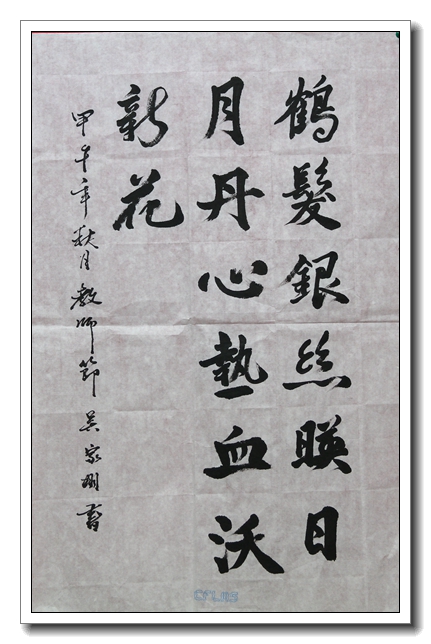 鶴髮銀絲暎日
月丹心熱血沃
新花
甲午年秋月教師節吴家明書